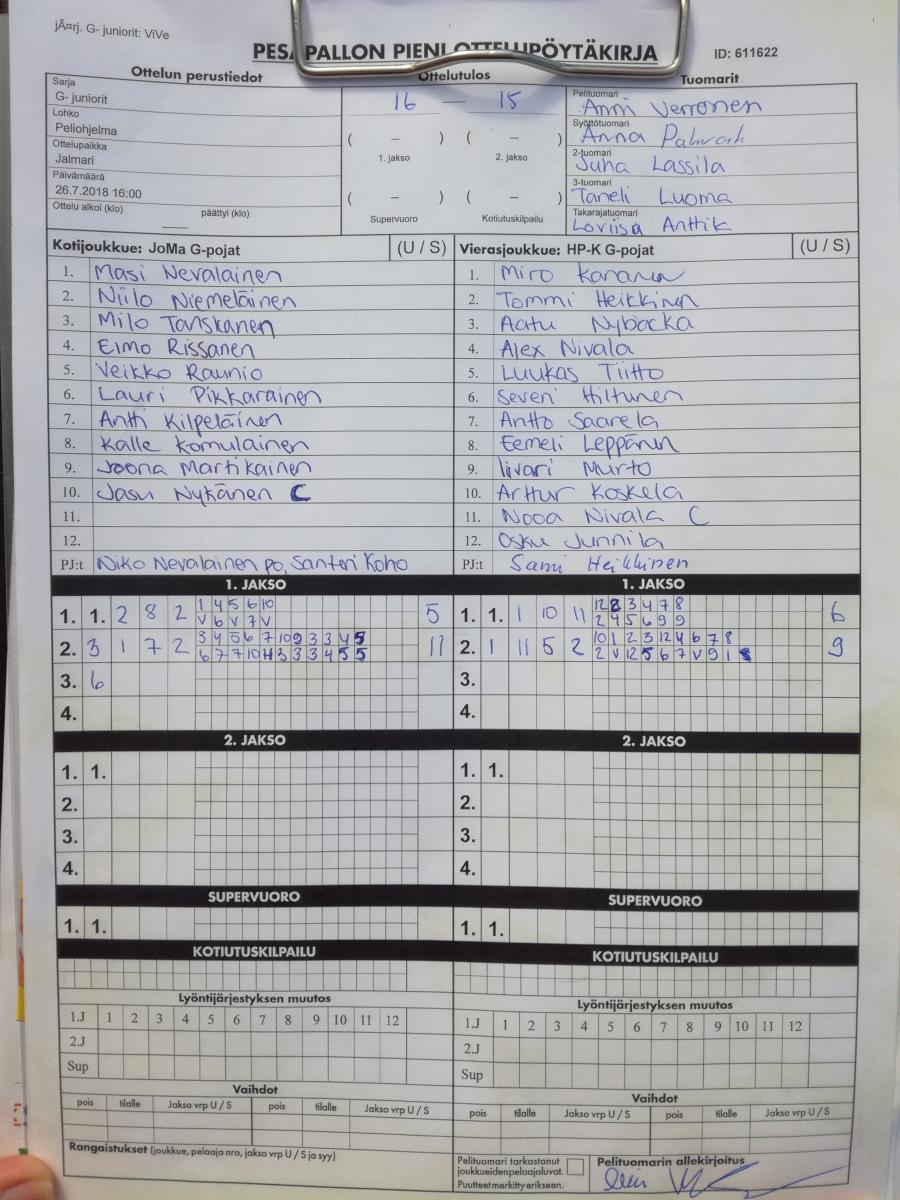 jÃ¤rj. G- juniorit: ViVe
PESÄPALLON PIENI OTTELUPÖYTÄKIRJA
ID: 611622
Ottelun perustiedot Ottelutulos Tuomarit
Sarja
G- juniorit
Lohko
Peliohjelma
Ottelupaikka
Jalmari
Päivämäärä
26.7.2018 16:00
Ottelu alkoi (klo) päättyi (klo)
16 — 15
( – ) ( – )
1. jakso 2. jakso
( – ) ( – )
Supervuoro Kotiutuskilpailu
Pelituomari
Anni Verronen
Syöttötuomari
Anna
2-tuomari
Juha Lassila
3-tuomari
Taneli Luoma
Takarajatuomari
Loviisa Anttik
Kotijoukkue: JoMa G-pojat (U / S)
1. Masi Nevalainen
2. Niilo Niemeläinen
3. Milo Tanskanen
4. Eimo Rissanen
5. Veikko Raunio
6. Lauri Pikkarainen
7. Antti Kilpeläinen
8. Kalle Komulainen
9. Joona Martikainen
10. Jasu Nykänen C
11.
12.
PJ:t Niko Nevalainen po, Santeri Koho
Vierasjoukkue: HP-K G-pojat (U / S)
1. Miro Kananen
2. Tommi Heikkinen
3. Aatu Nybacka
4. Alex Nivala
5. Luukas Tiitto
6. Severi Hiltunen
7. Antto Saarela
8. Eemeli Leppänen
9. Iivari Murto
10. Arttur Koskela
11. Nooa Nivala C
12. Osku Junnila
PJ:t Sami Heikkinen
1. JAKSO
1. 1. 2 8 2 1 4 5 6 10 5
V 6 V 7 V
2. 3 1 7 2 3 4 5 6 7 10 9 3 3 4 5 11
6 7 7 10 3 3 3 4 5 5
3. 6
4.
1. JAKSO
1. 1. 1 10 11 12 2 3 4 7 8 6
2 4 5 6 9 9
2. 1 11 5 2 10 1 2 3 12 4 6 7 8 9
2 V 12 5 6 7 V 9 1
3.
4.
2. JAKSO
1. 1.
2.
3.
4.
2. JAKSO
1. 1.
2.
3.
4.
SUPERVUORO
1. 1.
SUPERVUORO
1. 1.
KOTIUTUSKILPAILU
Lyöntijärjestyksen muutos
1.J 1 2 3 4 5 6 7 8 9 10 11 12
2.J
Sup
Vaihdot
pois tilalle Jakso vrp U / S pois tilalle Jakso vrp U / S
Rangaistukset (joukkue, pelaaja nro, jakso vrp U / S ja syy)
KOTIUTUSKILPAILU
Lyöntijärjestyksen muutos
1.J 1 2 3 4 5 6 7 8 9 10 11 12
2.J
Sup
Vaihdot
pois tilalle Jakso vrp U / S pois tilalle Jakso vrp U / S
Pelituomari tarkastanut
joukkueidenpelaajaluvat.
Puutteet merkitty erikseen.
Pelituomarin allekirjoitus